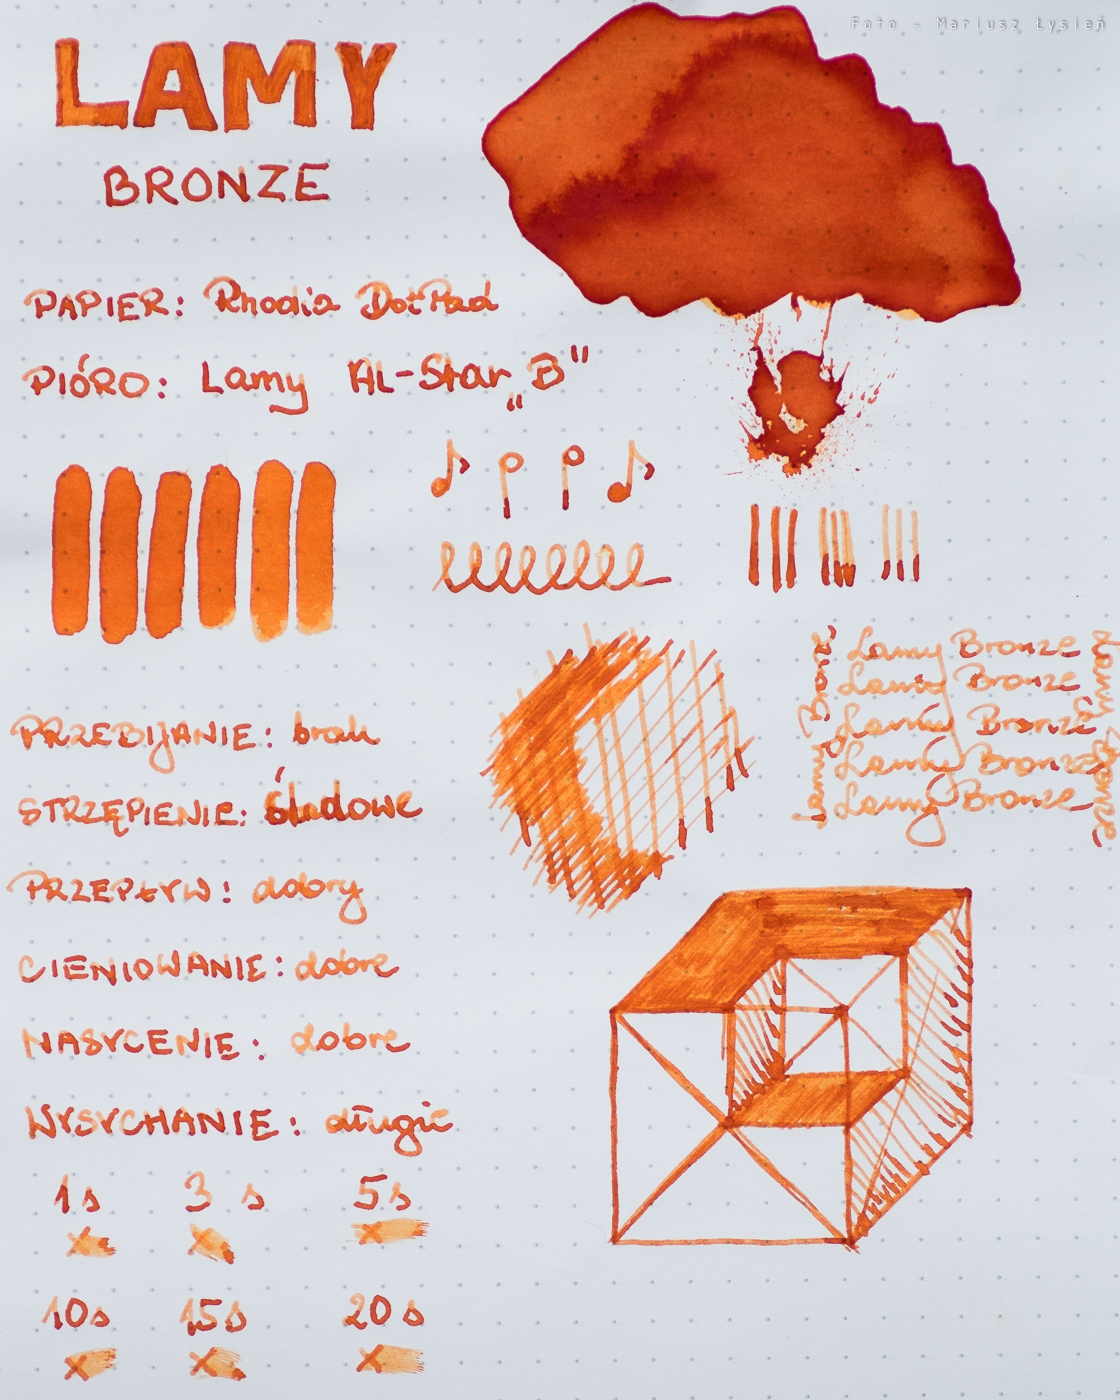 Foto - Mariusz Łysień
LAMY
BRONZE
PAPIER: Rhodia DotPad
PIÓRO: Lamy AL-Star „B"
PRZEBIJANIE: brak
STRZĘPIENIE: śladowe
PRZEPŁYW: dobry
CIENIOWANIE: dobre
NASYCENIE: dobre
WYSYCHANIE: długie
1s 3s 5s
x x x
10s 15s 20s
x x x
Lamy Bronze
Lamy Bronze
Lamy Bronze
Lamy Bronze
Lamy Bronze
Lamy Bronze
Lamy Bronze